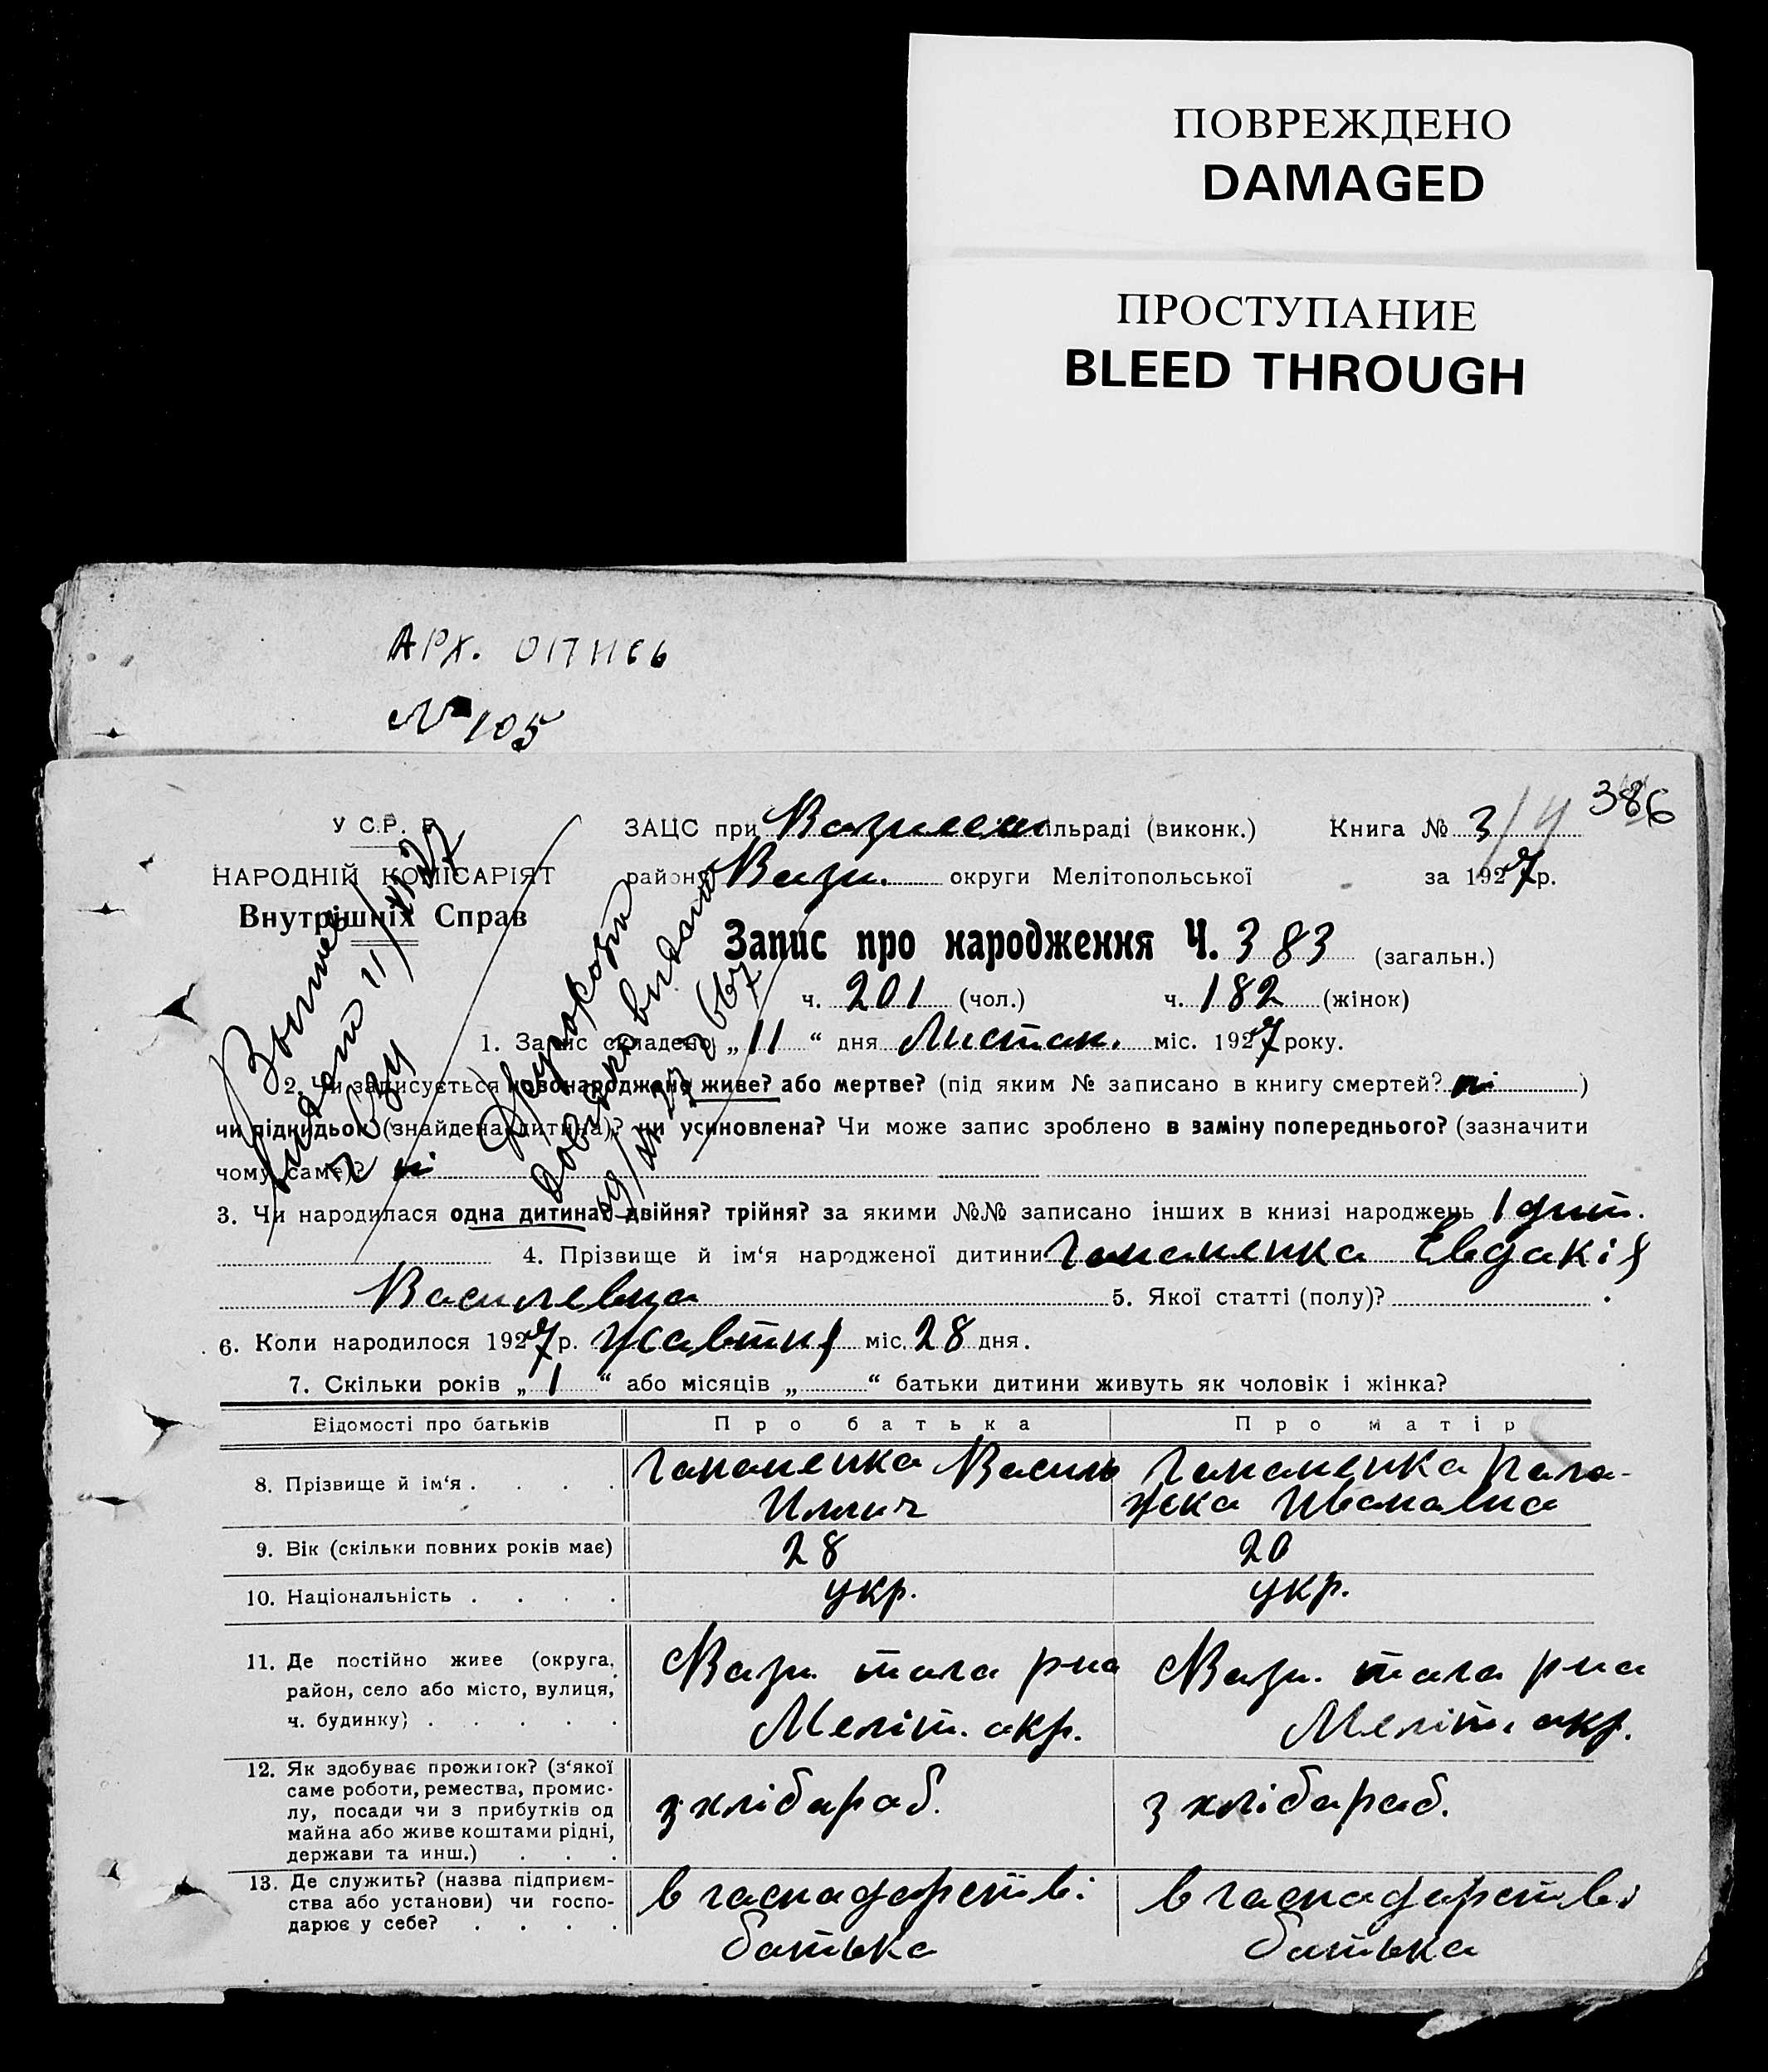 ПОВРЕЖДЕНО
DAMAGED
ПРОСТУПАНИЕ
BLEED THROUGH
АРХ.
№ 105
386
У С.Р. Р.
ЗАЦС при сільраді (виконк.) Книга № 3/4
НАРОДНІЙ КОМІСАРІЯТ
району округи Мелітопольської за 1927 р.
Внутрішніх Справ
Запис про народження Ч. 383 (загальн.)
ч. 201 (чол.) ч. 182 (жінок)
1. Запис складено „11“ дня Листоп. міс. 1927 року.
2. Чи записується новонароджене живе? або мертве? (під яким № записано в книгу смертей? ні)
чи підкидьок (знайдена дитина)? чи усиновлена? Чи може запис зроблено в заміну попереднього? (зазначити
чому саме)? ні
3. Чи народилася одна дитина? двійня? трійня? за якими №№ записано інших в книзі народжень 1 дит.
4. Прізвище й ім‘я народженої дитини Гапаненка Евдакія
Василевна 5. Якої статті (полу)?
6. Коли народилося 1927 р. жавтня міс. 28 дня.
7. Скільки років „1“ або місяців „ “ батьки дитини живуть як чоловік і жінка?
Відомості про батьків Про батька Про матір
8. Прізвище й ім‘я Гапаненка Василь Гапаненка Пала-
Иллич жка Ивановна
9. Вік (скільки повних років має) 28 20
10. Національність укр. укр.
11. Де постійно живе (округа,
район, село або місто, вулиця,
ч. будинку) тага рна тага рна
Меліт. акр. Меліт. акр.
12. Як здобуває прожиток? (з‘якої
саме роботи, ремества, промис-
лу, посади чи з прибутків од
майна або живе коштами рідні,
держави та инш.) з хлібараб. з хлібараб.
13. Де служить? (назва підприєм-
ства або установи) чи госпо-
дарює у себе? в гаспадарстві в гаспадарстві
батька батька